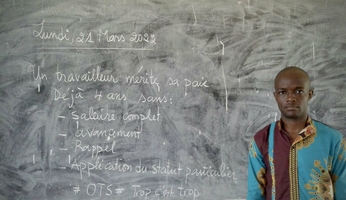 Lundi, 21 Mars 2022
Un travailleur mérite sa paie
Déjà 4 ans sans:
- Salaire complet
- avancement
- Rappel
- Application du Statut particulier
# OTS # Trop c'est trop